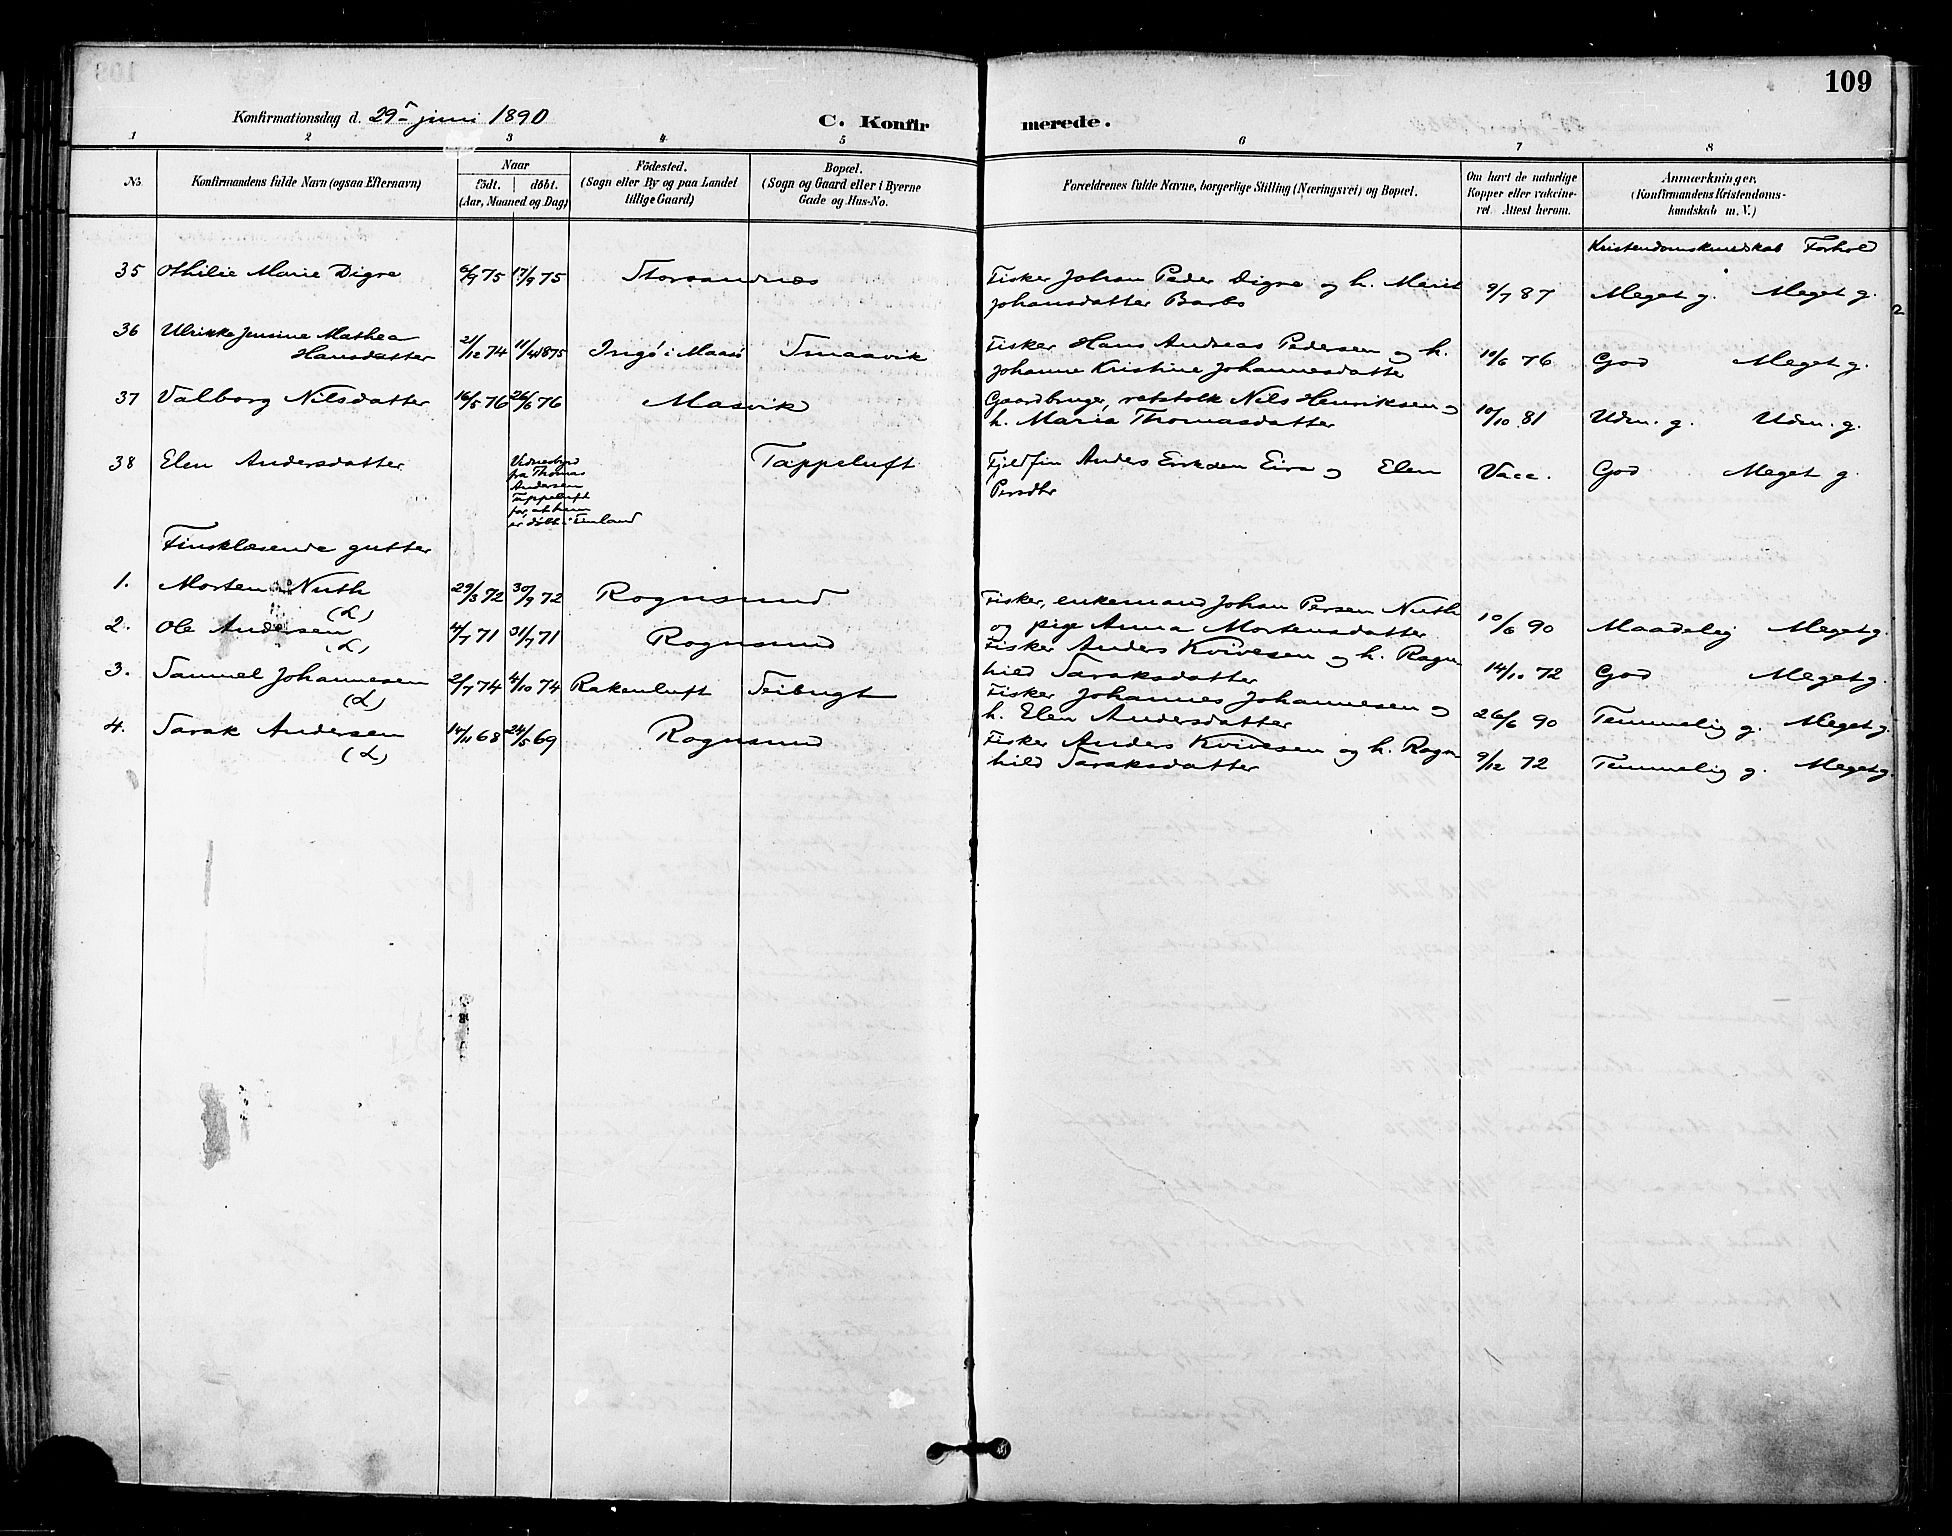 109
Konfirmationsdag d. 29de juni 1890 C. Konfirmerede.
1 2 3 4 5 6 7 8
No. Konfirmandens fulde Navn (ogsaa Efternavn) Naar født. døbt. (Aar, Maaned og Dag) Fødested. (Sogn eller By og paa Landet tillige Gaard) Bopæl. (Sogn og Gaard eller i Byerne Gade og Hus-No. Forældrenes fulde Navne, borgerlige Stilling (Næringsvei) og Bopæl. Om havt de naturlige Kopper eller vakcineret. Attest herom. Anmærkninger. (Konfirmandens Kristendomskundskab m. V.)
Kristendomskundskab Forhold
35 Othilie Marie Digre 6/9 75 17/9 75 Storsandnes Fisker Johan Peder Digre og h. Merit
Johansdatter Barbo 9/7 87 Meget g. Meget g.
36 Ulrikke Jensine Mathea
Hansdatter 21/12 74 11/4 1875 Ingö i Maasö Smaavik Fisker Hans Andreas Pedersen og h.
Johanne Kristine Johannesdatter 10/6 76 God Meget g.
37 Valborg Nilsdatter 16/5 76 26/6 76 Masvik Gaardbruger, retstolk Nils Henriksen og
h. Maria Thomasdatter 10/10 81 Udm. g. Udm. g.
38 Elen Andersdatter Vidnesbyrd
fra Thomas
Andersen
Tappeluft
for, at hun
er døbt i Finland
Tappeluft Fjeldfin Anders Eriksen Eira og Elen
Persdtr Vacc. God Meget g.
Finsklæsende gutter
1. Morten Nuth
(L) 29/3 72 30/9 72 Rognsund Fisker, enkemand Johan Persen Nuth
og pige Anna Mortensdatter 10/6 90 Maadelig Meget g.
2. Ole Andersen
(L) 4/7 71 31/7 71 Rognsund Fisker Anders Kvivesen og h. Ragn
hild Saraksdatter 14/10 72 God Meget g.
3. Samuel Johannesen
(L) 2/7 74 4/10 74 Rakenluft Seibugt Fisker Johannes Johannesen og
h. Elen Andersdatter 26/6 90 Temmelig g. Meget g.
4. Sarak Andersen
(L) 14/11 68 24/5 69 Rognsund Fisker Anders Kvivesen og h. Ragn
hild Saraksdatter 9/12 72 Temmelig g. Meget g.